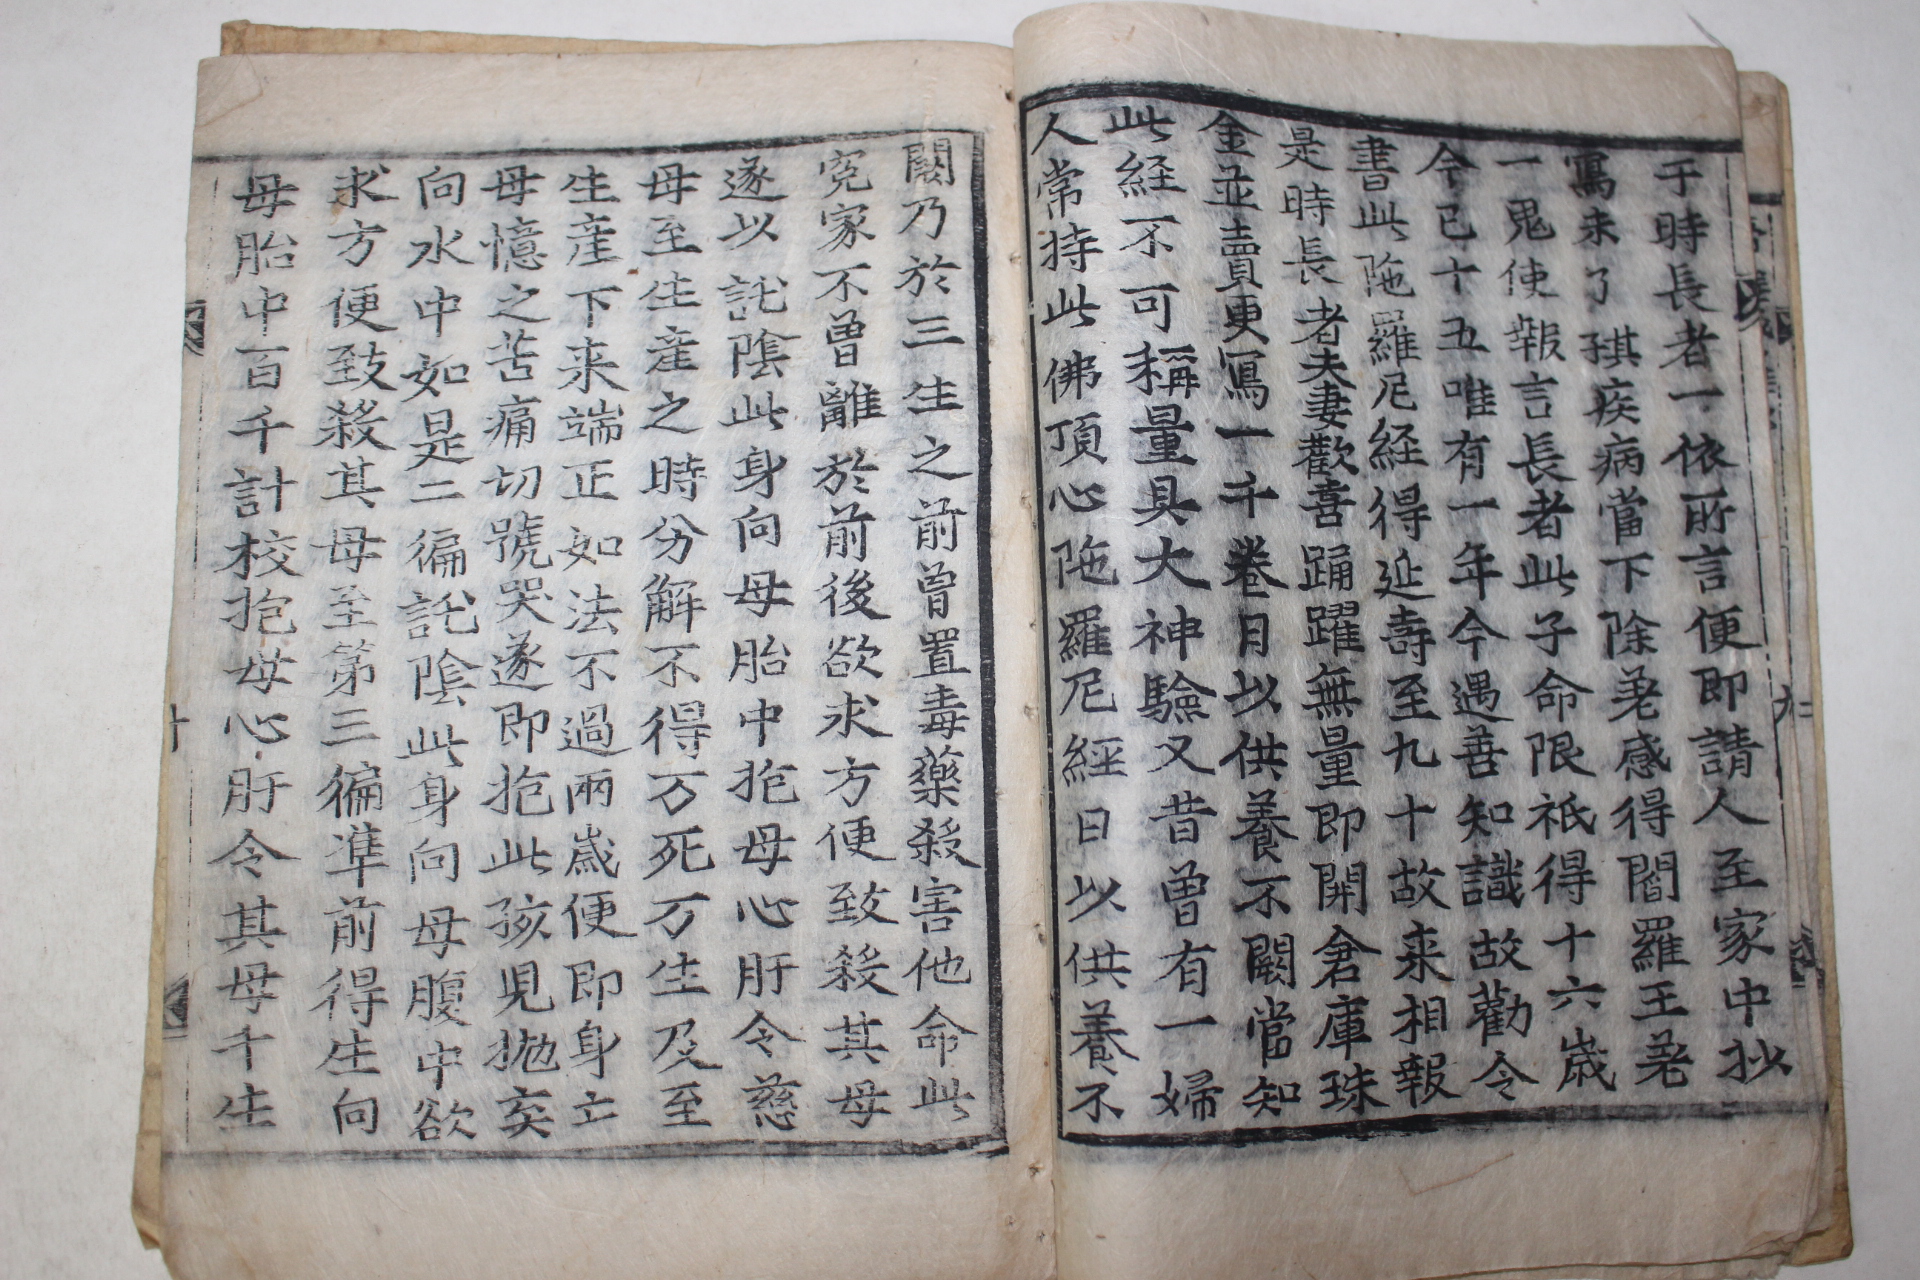 于時長者一依所言便即請人至家中抄
寫未了其疾病當下除差感得閻羅王差
一鬼使報言長者此子命限祇得十六歲
今已十五唯有一年今遇善知識故勸令
書此陁羅尼経得延壽至九十故来相報
是時長者夫妻歡喜踊躍無量即開倉庫珠
金並賣更寫一千卷日以供養不闕當知
此経不可稱量具大神驗又昔曾有一婦
人常持此佛頂心陁羅尼經日以供養不
闕乃於三生之前曾置毒藥殺害他命此
寃家不曾離於前後欲求方便致殺其母
遂以託陰此身向母胎中抱母心肝令慈
母至生産之時分解不得万死万生及至
生産下来端正如法不過兩歲便即身亡
母憶之苦痛切號哭遂即抱此孩兒抛弃
向水中如是二徧託陰此身向母腹中欲
求方便致殺其母至第三徧準前得生向
母胎中百千計校抱母心肝令其母千生
九
十